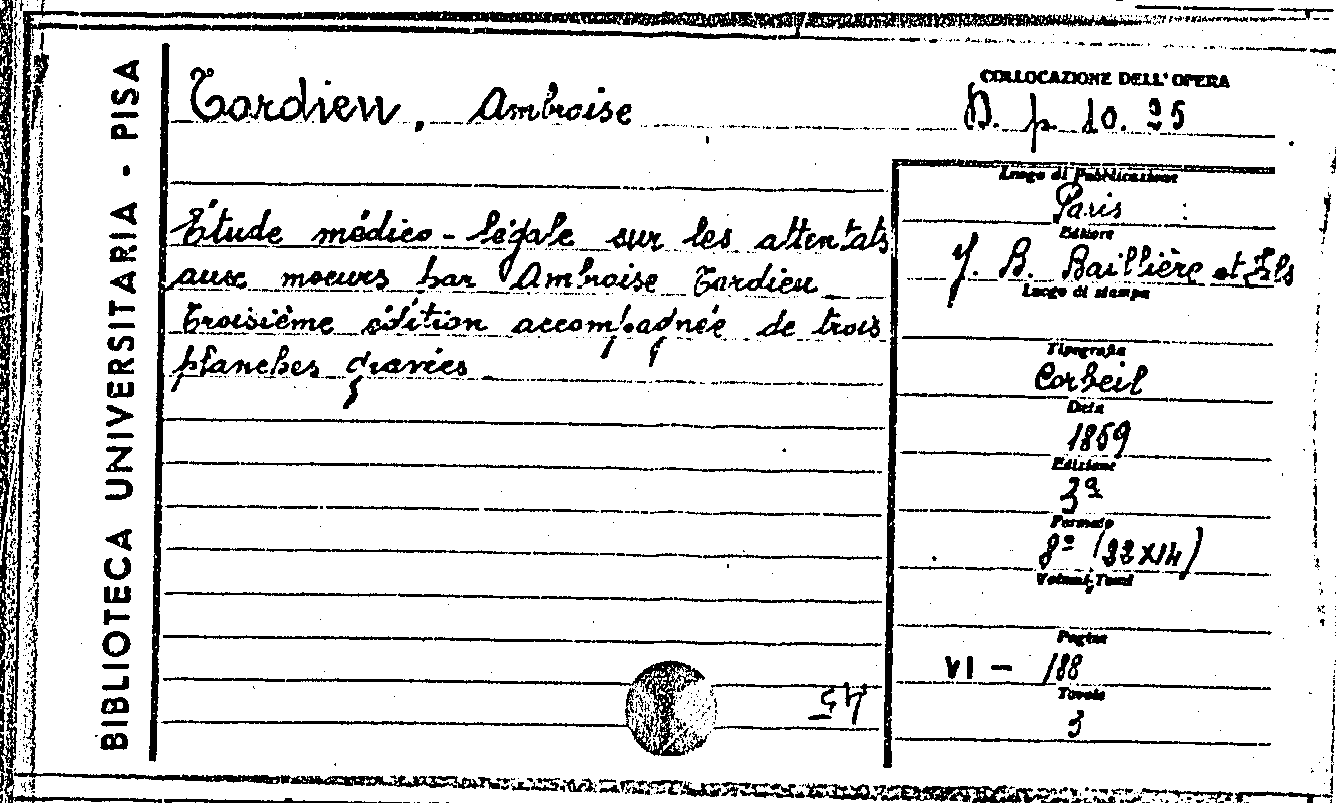 BIBLIOTECA UNIVERSITARIA - PISA
Tardieu, Ambroise
COLLOCAZIONE DELL'OPERA
D. p. 10. 25
Étude médico-légale sur les attentats
aux moeurs par Ambroise Tardieu
Troisième édition accompagnée de trois
planches gravées
Luogo di Pubblicazione
Paris
Editore
J. B. Baillière et Fils
Luogo di stampa
Tipografia
Corbeil
Data
1859
Edizione
3ª
Formato
8º (22x14)
Volumi, Tomi
Pagine
VI - 188
Tavole
3